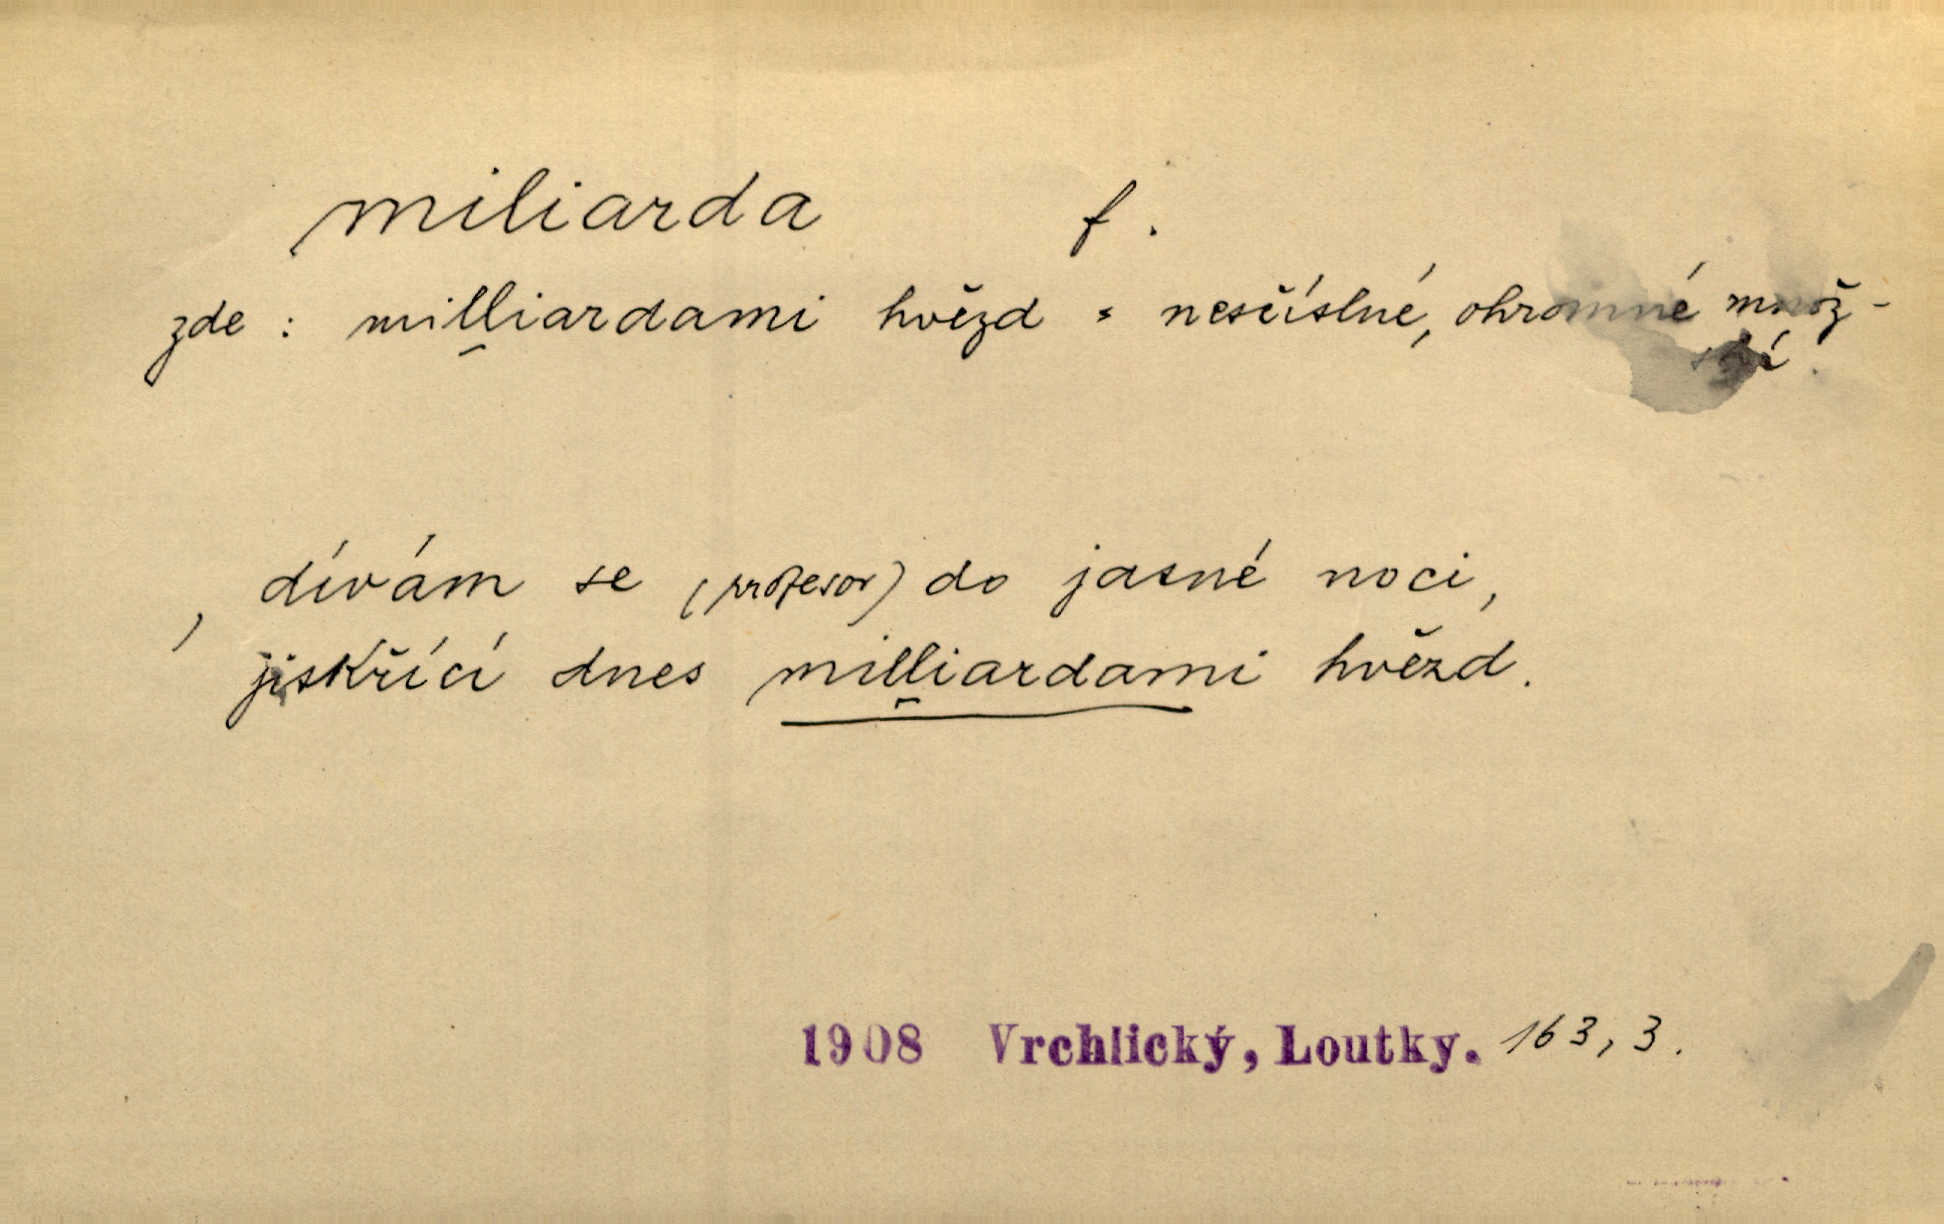 miliarda f.
zde : milliardami hvězd = nesčíslné, ohromné množ-
ství.
, dívám se (profesor) do jasné noci,
jiskřící dnes milliardami hvězd.
1908 Vrchlický, Loutky. 163, 3.